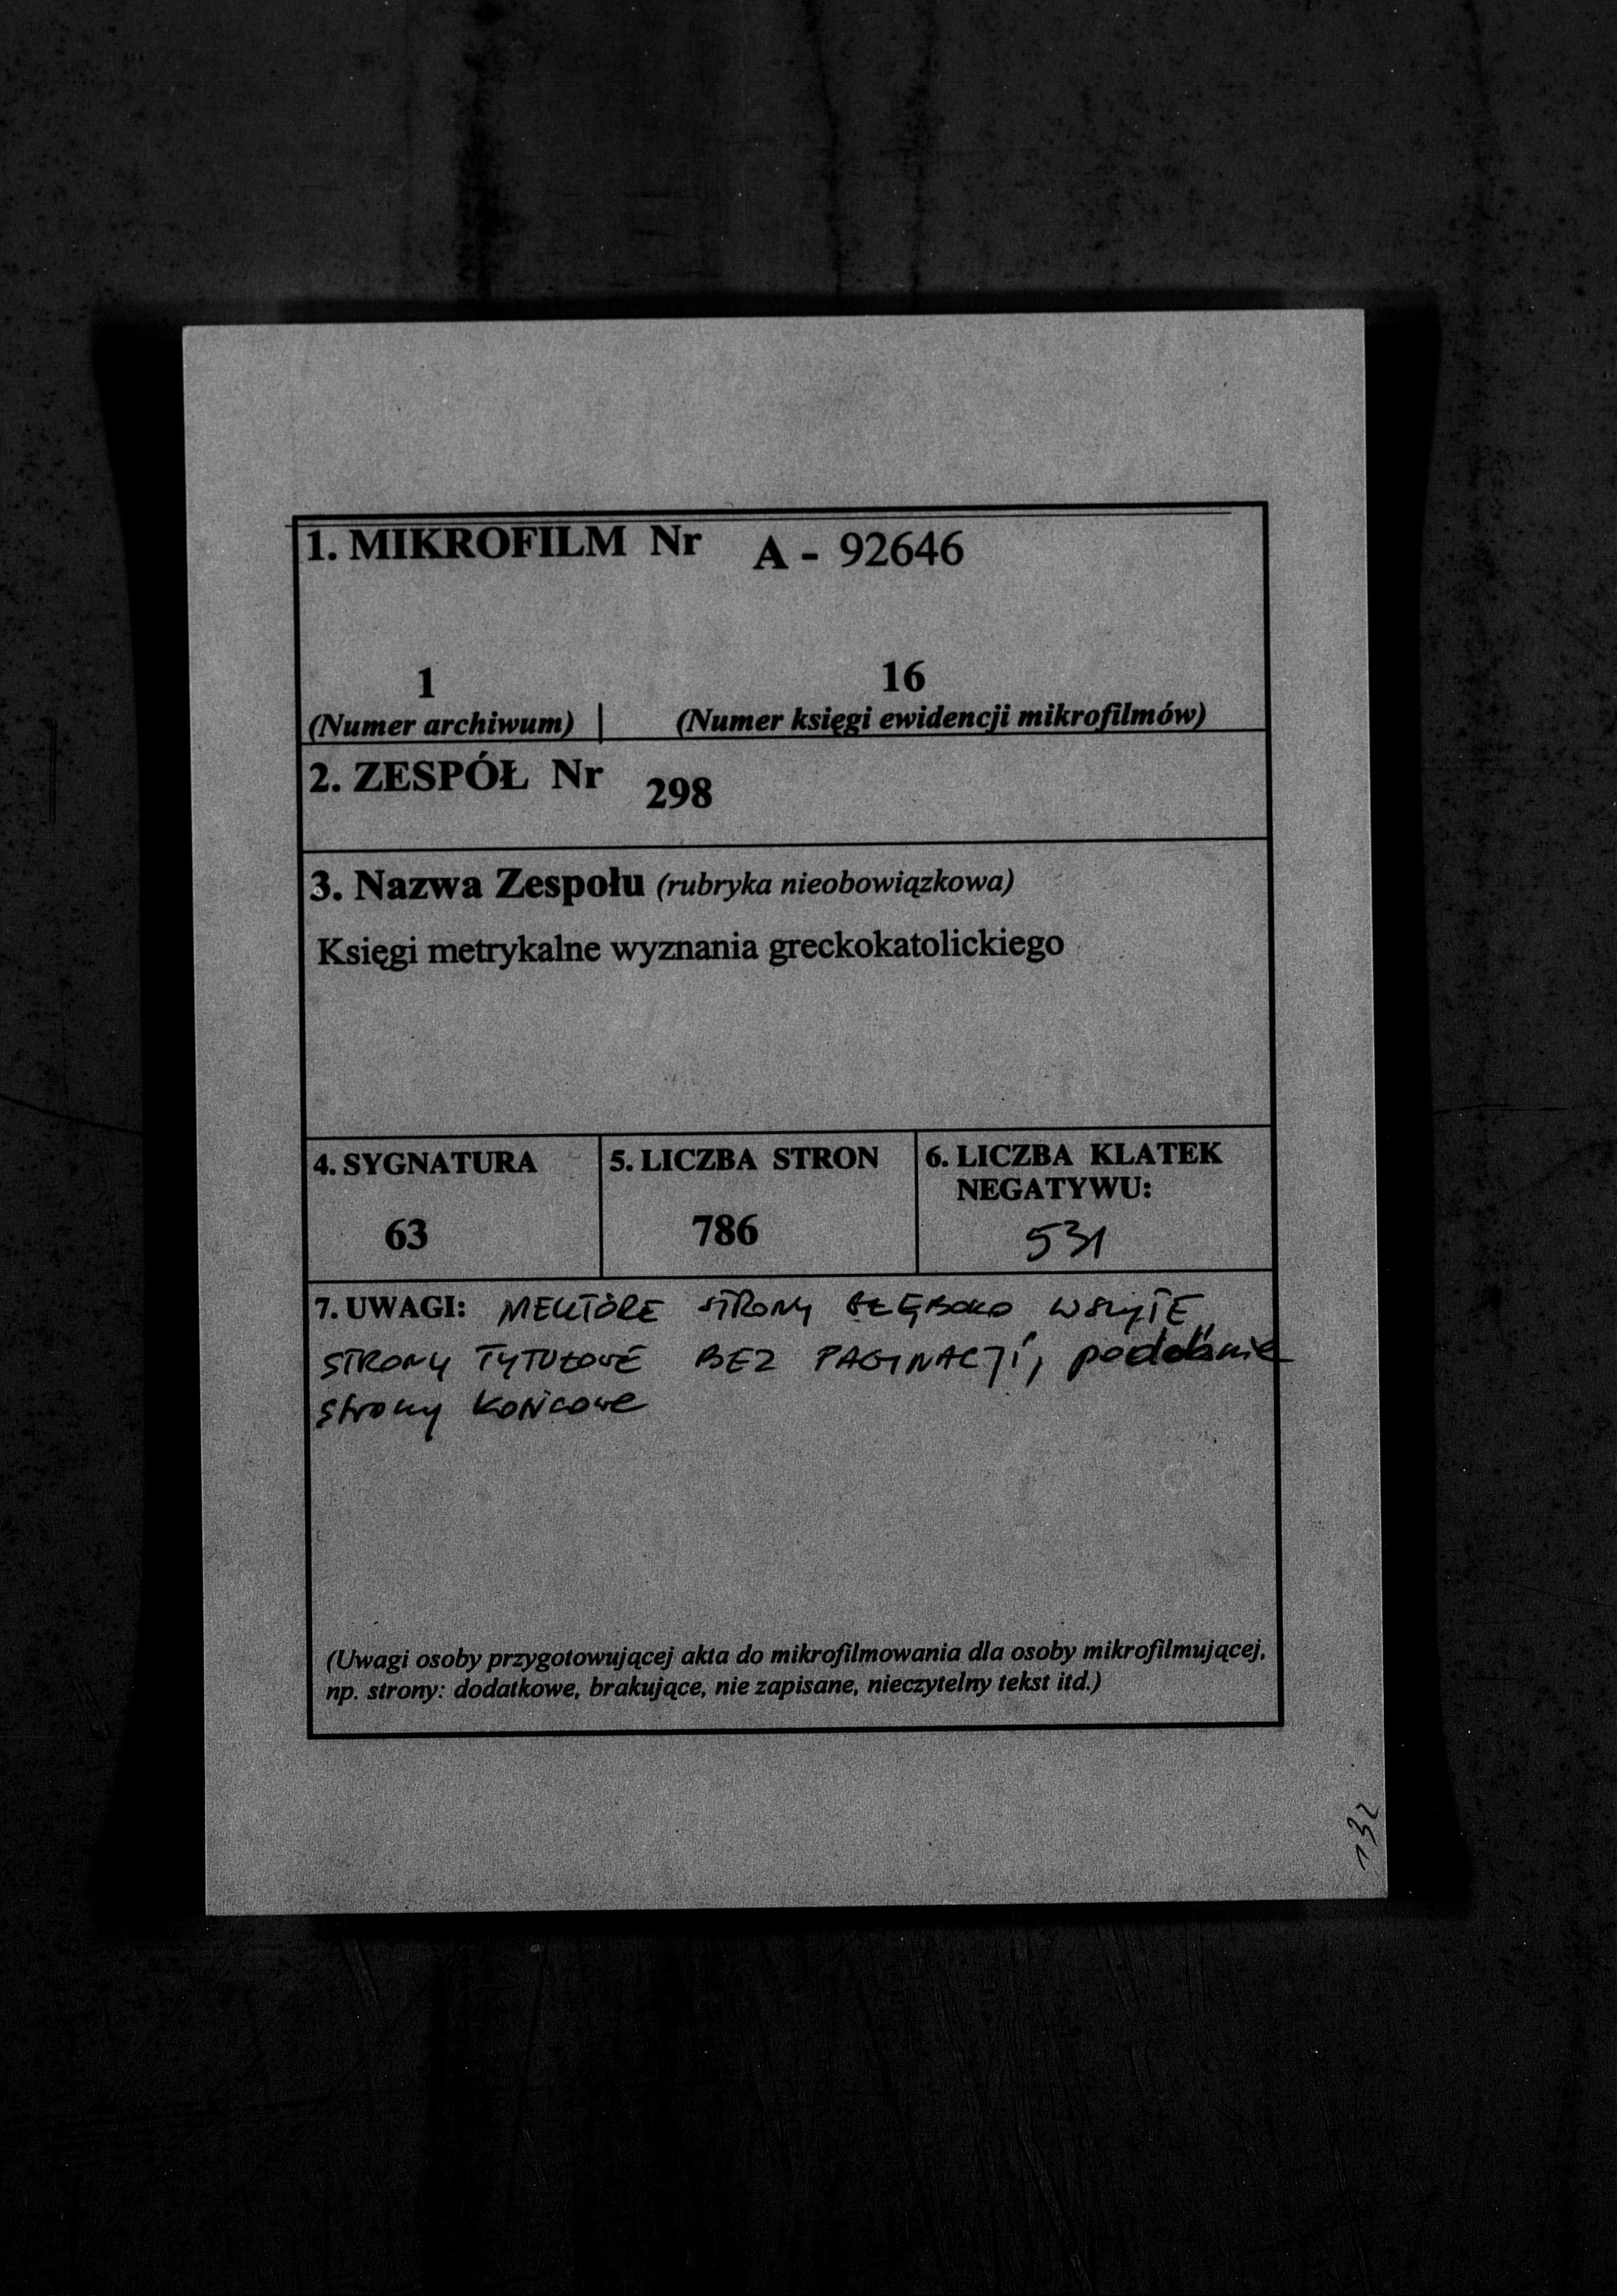 1. MIKROFILM Nr A - 92646
1 16
(Numer archiwum) (Numer księgi ewidencji mikrofilmów)
2. ZESPÓŁ Nr 298
3. Nazwa Zespołu (rubryka nieobowiązkowa)
Księgi metrykalne wyznania greckokatolickiego
4. SYGNATURA
63
5. LICZBA STRON
786
6. LICZBA KLATEK
NEGATYWU:
531
7. UWAGI: NIEKTÓRE STRONY GŁĘBOKO WSZYTE,
STRONY TYTUŁOWE BEZ PAGINACJI, podobnie
strony końcowe
(Uwagi osoby przygotowującej akta do mikrofilmowania dla osoby mikrofilmującej,
np. strony: dodatkowe, brakujące, nie zapisane, nieczytelny tekst itd.)
132